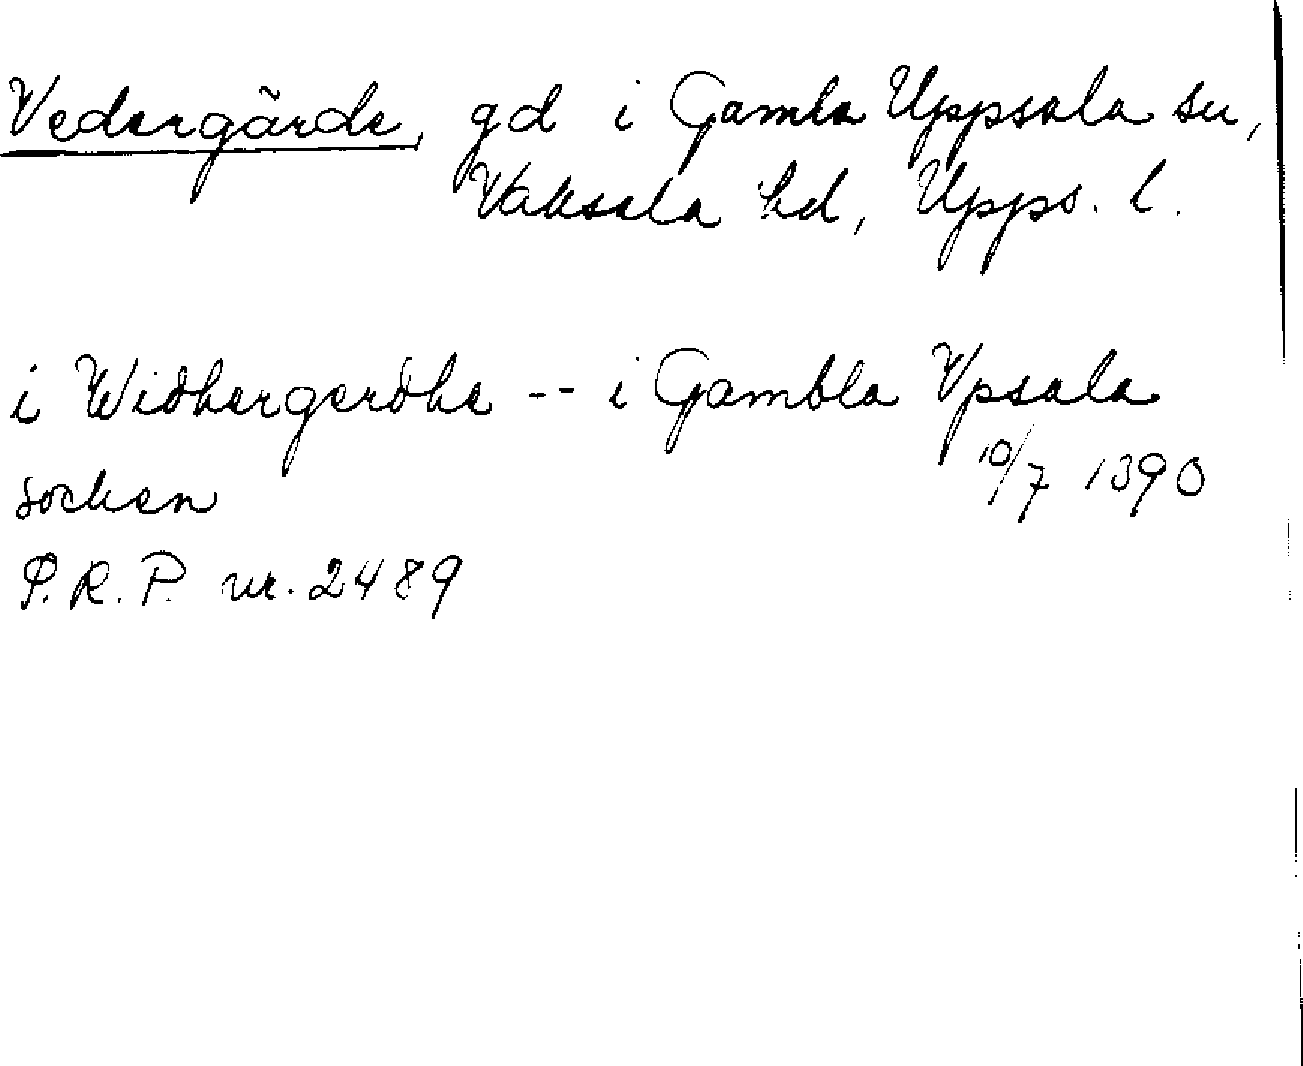 Vedergärde, gd i Gamla Uppsala sn,
Vaksala hd, Upps. l.
i Widhergerdhe -- i Gambla Vpsala
socken
10/7 1390
S.R.P. nr. 2489